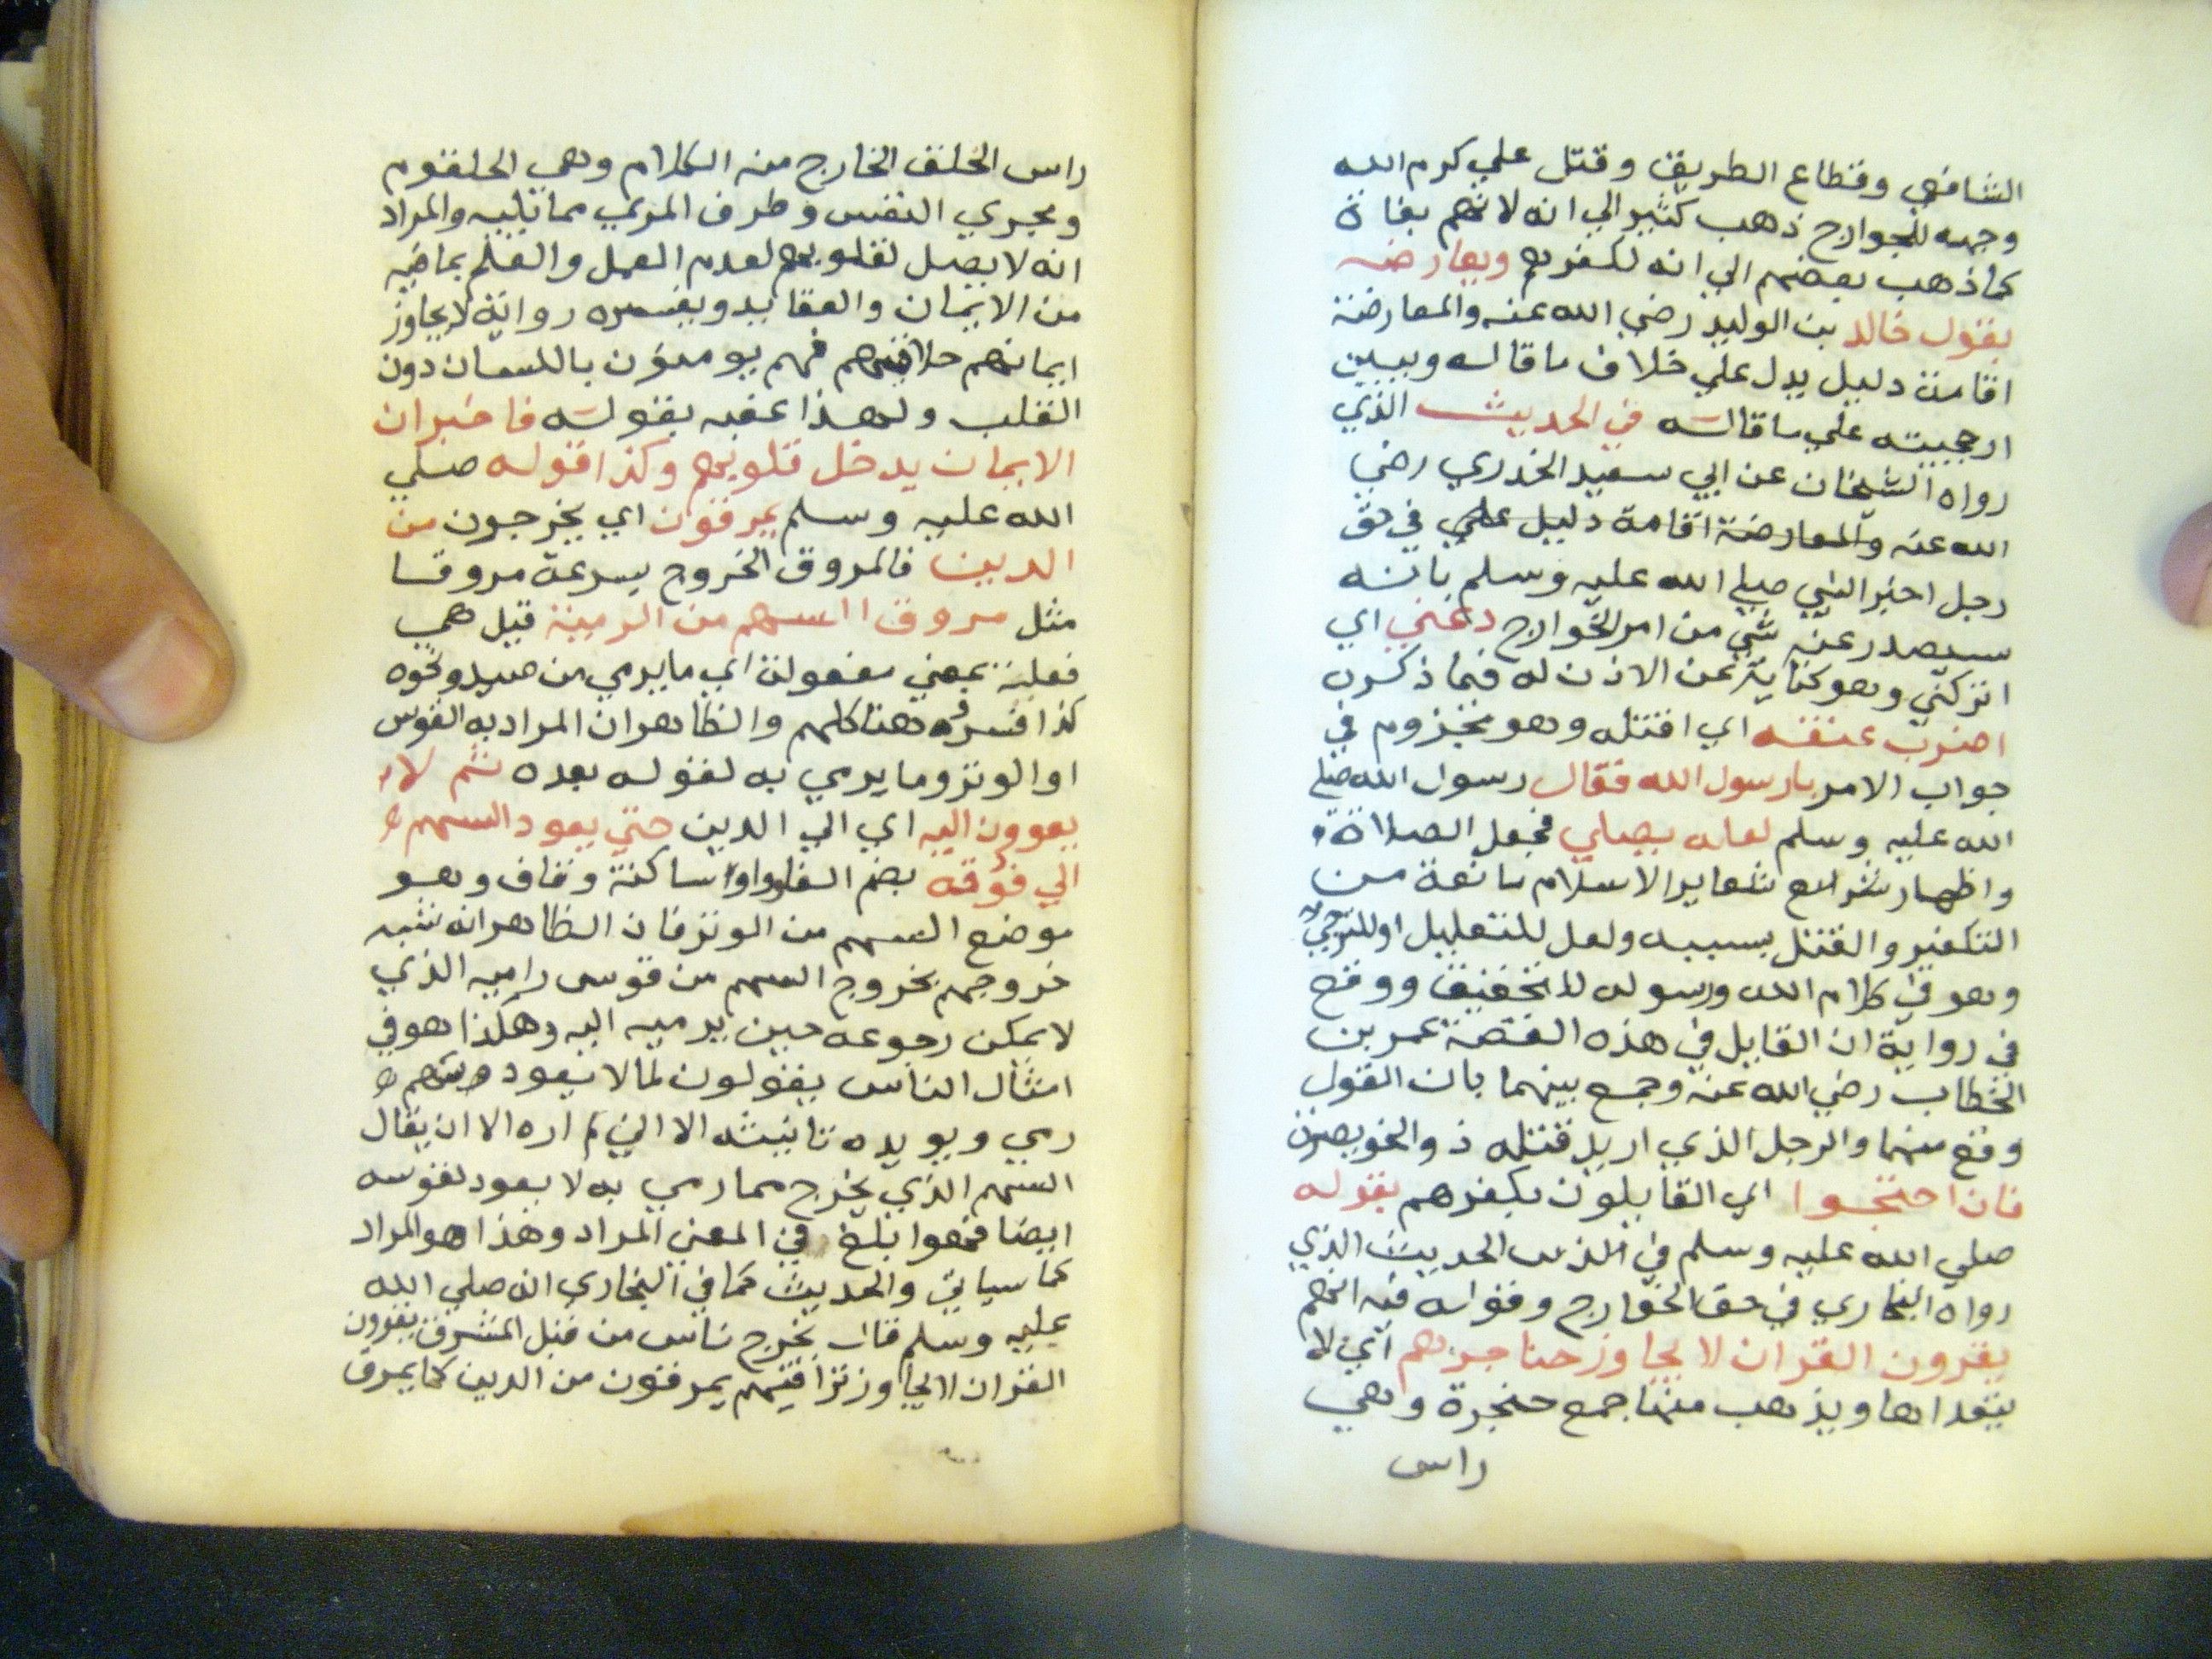 الشافعي وقطاع الطريق وقتل علي كرم الله
وجهه للخوارج ذهب كثير الي انه لانهم بغاة
كما ذهب بعضهم الي انه لكفرهم ويعارضه
بقول خالد بن الوليد رضي الله عنه والمعارضة
اقامة دليل يدل علي خلاف ما قاله ويبين
ارجحيته علي ما قاله في الحديث الذي
رواه الشيخان عن ابي سعيد الخدري رضي
الله عنه والمعارضة اقامة دليل علي في حق
رجل اخبر النبي صلي الله عليه وسلم بانه
سيصدر عنه شي من امر الخوارج دعني اي
اتركني وهو كناية عن الاذن له فيما ذكره
اضرب عنقه اي اقتله وهو مجزوم في
جواب الامر يارسول الله فقال رسول الله صلي
الله عليه وسلم لعله يصلي فجعل الصلاة
واظهار شرايع شعاير الاسلام مانعة من
التكفير والقتل بسببه ولعل للتعليل او للترجي
وهو في كلام الله ورسوله للتحقيق ووقع
في رواية ان القايل في هذه القصة عمر بن
الخطاب رضي الله عنه وجمع بينهما بان القول
وقع منهما والرجل الذي اريد قتله ذو الخويصرة
فان احتجوا اي القايلون بكفرهم بقوله
صلي الله عليه وسلم في الحديث الذي
رواه البخاري في حق الخوارج وقوله فيه انهم
يقرون القران لا يجاوز حناجرهم اي لا
يتعداها ويذهب منها جمع حنجرة وهي
راس
راس الخلف الخارج منه الكلام وهي الحلقوم
ومجري النفس وطرف المري مما يليه والمراد
انه لا يصل لقلوبهم لعدم العمل والعلم بما فيه
من الايمان والعقايد ويفسره رواية لا يجاوز
ايمانهم حلاقيمهم فهم يومنون باللسان دون
القلب ولهذا عقبه بقوله فاخبر ان
الايمان يدخل قلوبهم وكذا قوله صلي
الله عليه وسلم يمرقون اي يخرجون من
الدين فالمروق الخروج بسرعة مروقا
مثل مروق السهم من الرمية قيل هي
فعلية بمعني مفعولة اي ما يرمي من صيد ونحوه
كذا فسره هنا كلهم والظاهر ان المراد به القوس
او الوتر وما يرمي به لقوله بعده ثم لا
يعودون اليه اي الي الدين حتي يعود السهم
الي فوقه بضم الفا وواو ساكنة وقاف وهو
موضع السهم من الوتر فان الظاهر انه شبه
خروجهم بخروج السهم من قوس راميه الذي
لا يمكن رجوعه حين يرميه اليه وهكذا هو في
امثال الناس يقولون لما لا يعود سهم
رمي ويويده تانيثه الا اني لم اره الا ان يقال
السهم الذي يخرج مما رمي به لا يعود لقوسه
ايضا فهو ابلغ في المعني المراد وهذا هو المراد
كما سياتي والحديث كما في البخاري انه صلي الله
عليه وسلم قال يخرج ناس من قبل المشرق يقرون
القران لا يجاوز تراقيهم يمرقون من الدين كما يمرق